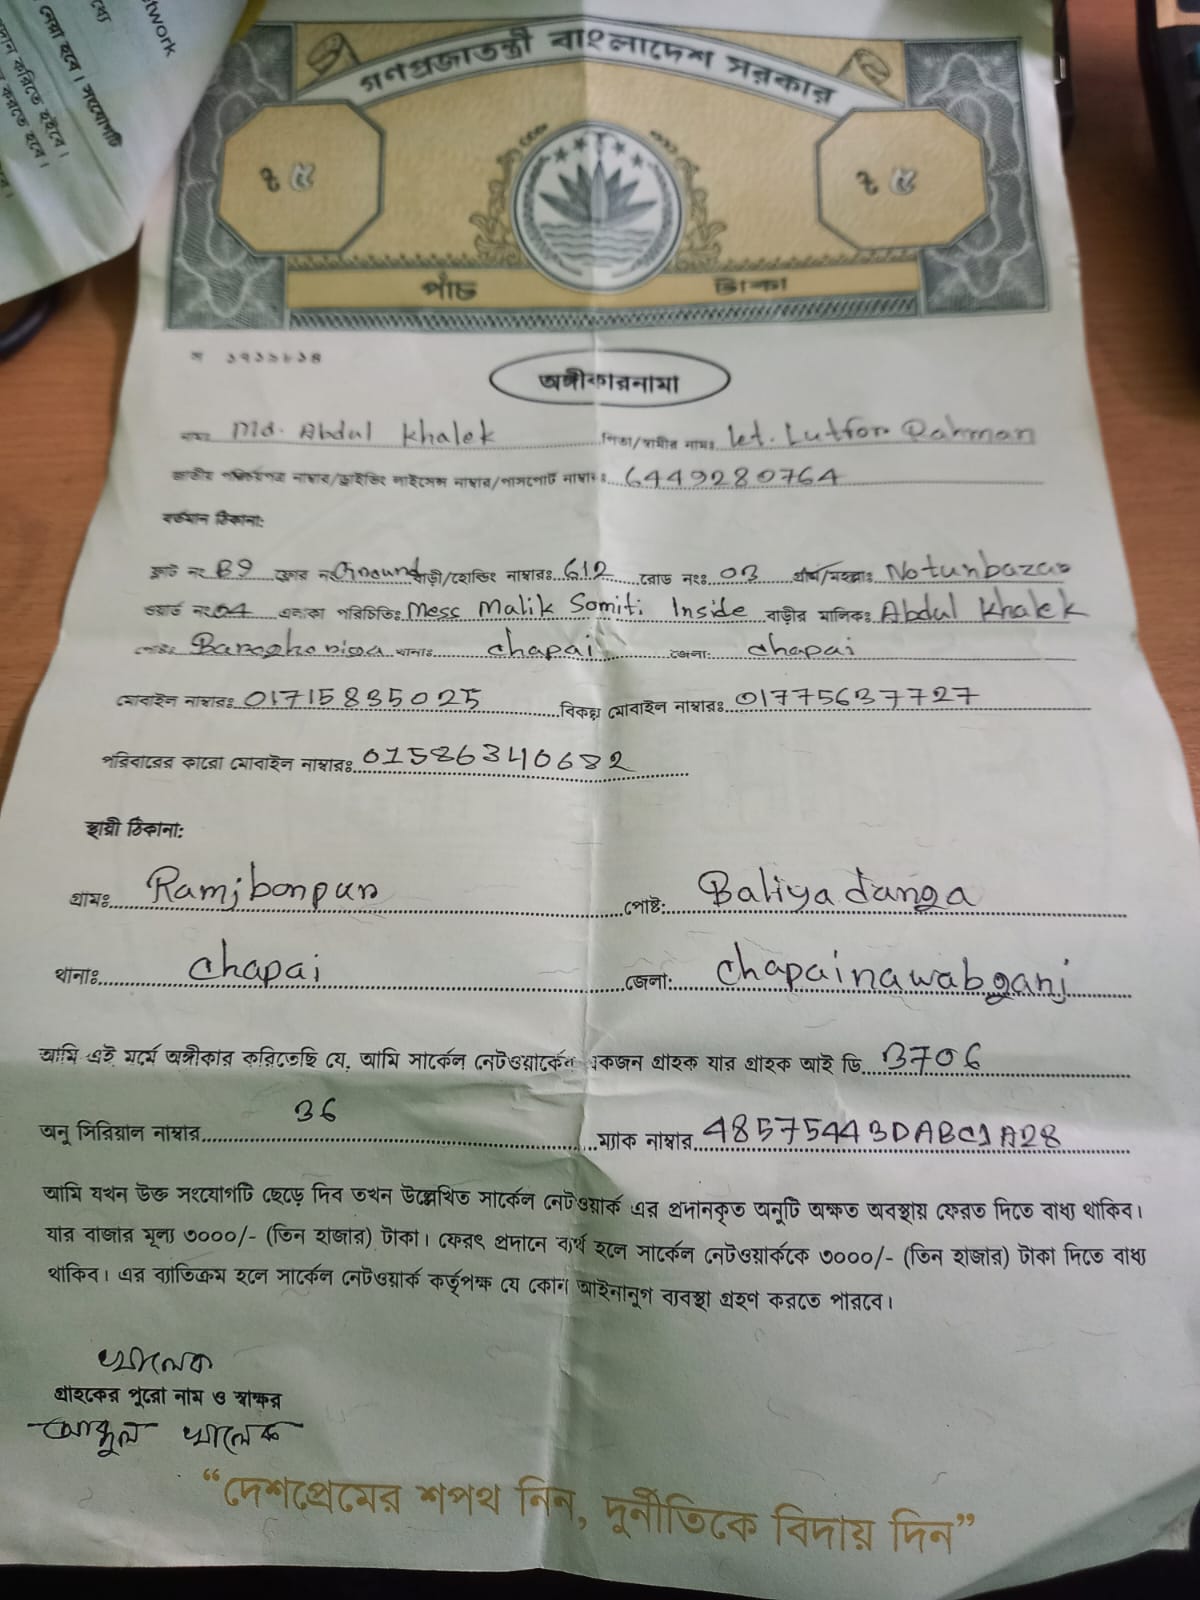 গণপ্রজাতন্ত্রী বাংলাদেশ সরকার
৳ ৫ ৳ ৫
পাঁচ টাকা
অঙ্গীকারনামা
নামঃ Md. Abdul Khalek পিতা/স্বামীর নামঃ Let. Lutfor Rahman
জাতীয় পরিচয়পত্র নাম্বার/ড্রাইভিং লাইসেন্স নাম্বার/পাসপোর্ট নাম্বারঃ 6449280764
বর্তমান ঠিকানা:
ফ্লাট নং B9 ফ্লোর নং Ground বাড়ী/হোল্ডিং নাম্বারঃ 612 রোড নংঃ 03 গ্রাম/মহল্লাঃ Notunbazar
ওয়ার্ড নং 04 এলাকা পরিচিতিঃ Mess Malik Somiti Inside বাড়ীর মালিকঃ Abdul Khalek
পোষ্টঃ Baroghoriya থানাঃ chapai জেলা: chapai
মোবাইল নাম্বারঃ 01715835025 বিকল্প মোবাইল নাম্বারঃ 01775637727
পরিবারের কারো মোবাইল নাম্বারঃ 01586340682
স্থায়ী ঠিকানা:
গ্রামঃ Ramjbonpur পোষ্ট: Baliyadanga
থানাঃ chapai জেলা: chapainawabganj
আমি এই মর্মে অঙ্গীকার করিতেছি যে, আমি সার্কেল নেটওয়ার্কের একজন গ্রাহক যার গ্রাহক আই ডি 3706
অনু সিরিয়াল নাম্বার 36 ম্যাক নাম্বার 485754433DABC1A28
আমি যখন উক্ত সংযোগটি ছেড়ে দিব তখন উল্লেখিত সার্কেল নেটওয়ার্ক এর প্রদানকৃত অনুটি অক্ষত অবস্থায় ফেরত দিতে বাধ্য থাকিব।
যার বাজার মূল্য ৩০০০/- (তিন হাজার) টাকা। ফেরৎ প্রদানে ব্যর্থ হলে সার্কেল নেটওয়ার্ককে ৩০০০/- (তিন হাজার) টাকা দিতে বাধ্য
থাকিব। এর ব্যাতিক্রম হলে সার্কেল নেটওয়ার্ক কর্তৃপক্ষ যে কোন আইনানুগ ব্যবস্থা গ্রহণ করতে পারবে।
খালেক
গ্রাহকের পুরো নাম ও স্বাক্ষর
আব্দুল খালেক
“দেশপ্রেমের শপথ নিন, দুর্নীতিকে বিদায় দিন”